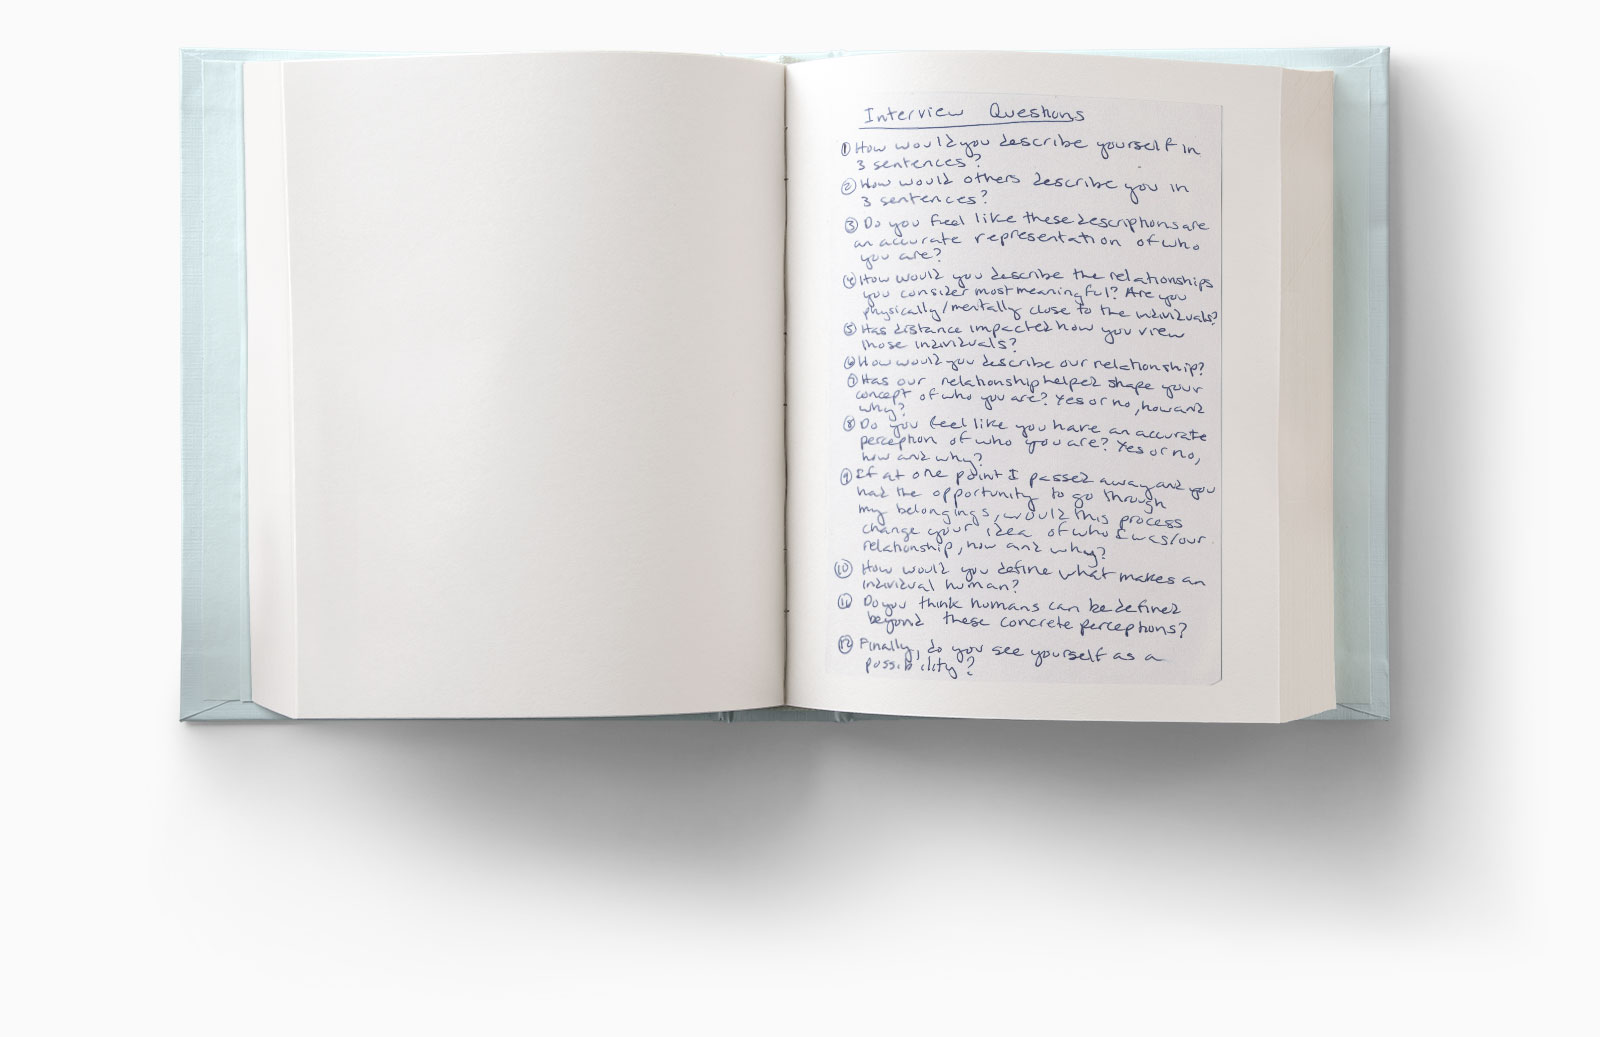 Interview Questions
① How would you describe yourself in
3 sentences?
② How would others describe you in
3 sentences?
③ Do you feel like these descriptions are
an accurate representation of who
you are?
④ How would you describe the relationships
you consider most meaningful? Are you
physically/mentally close to the individuals?
⑤ Has distance impacted how you view
those individuals?
⑥ How would you describe our relationship?
⑦ Has our relationship helped shape your
concept of who you are? Yes or no, how and
why?
⑧ Do you feel like you have an accurate
perception of who you are? Yes or no,
how and why?
⑨ If at one point I passed away and you
had the opportunity to go through
my belongings, would this process
change your idea of who I was/our
relationship, how and why?
⑩ How would you define what makes an
individual human?
⑪ Do you think humans can be defined
beyond these concrete perceptions?
⑫ Finally, do you see yourself as a
possibility?